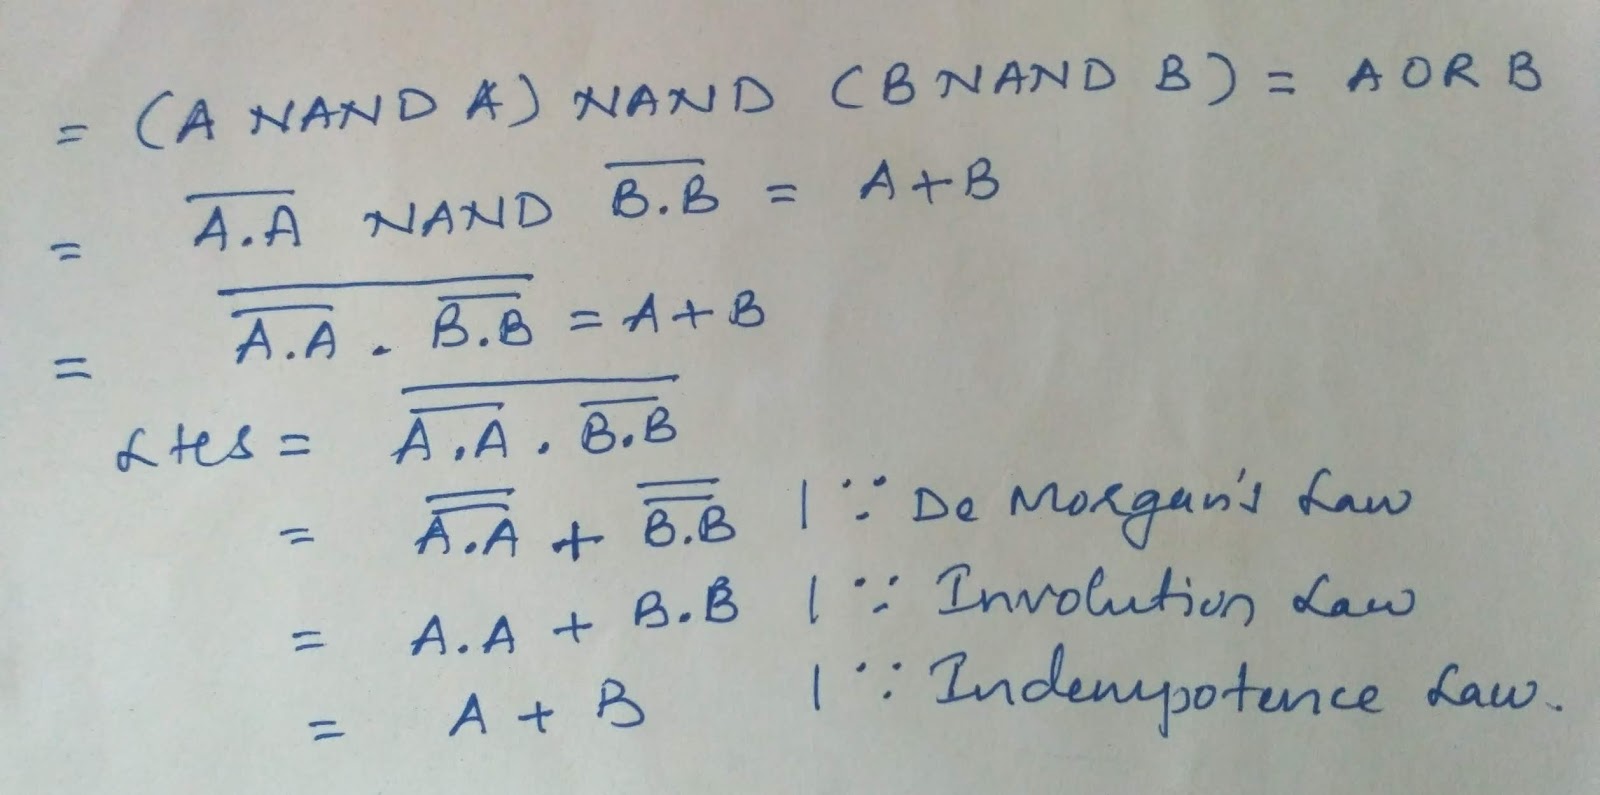 = (A NAND A) NAND (B NAND B) = A OR B
= A̅.̅A̅ NAND B̅.̅B̅ = A+B
= \overline{\overline{A.A} . \overline{B.B}} = A+B
LHS = \overline{\overline{A.A} . \overline{B.B}}
= \overline{\overline{A.A}} + \overline{\overline{B.B}} | ∵ De Morgan's Law
= A.A + B.B | ∵ Involution Law
= A + B | ∵ Indempotence Law.